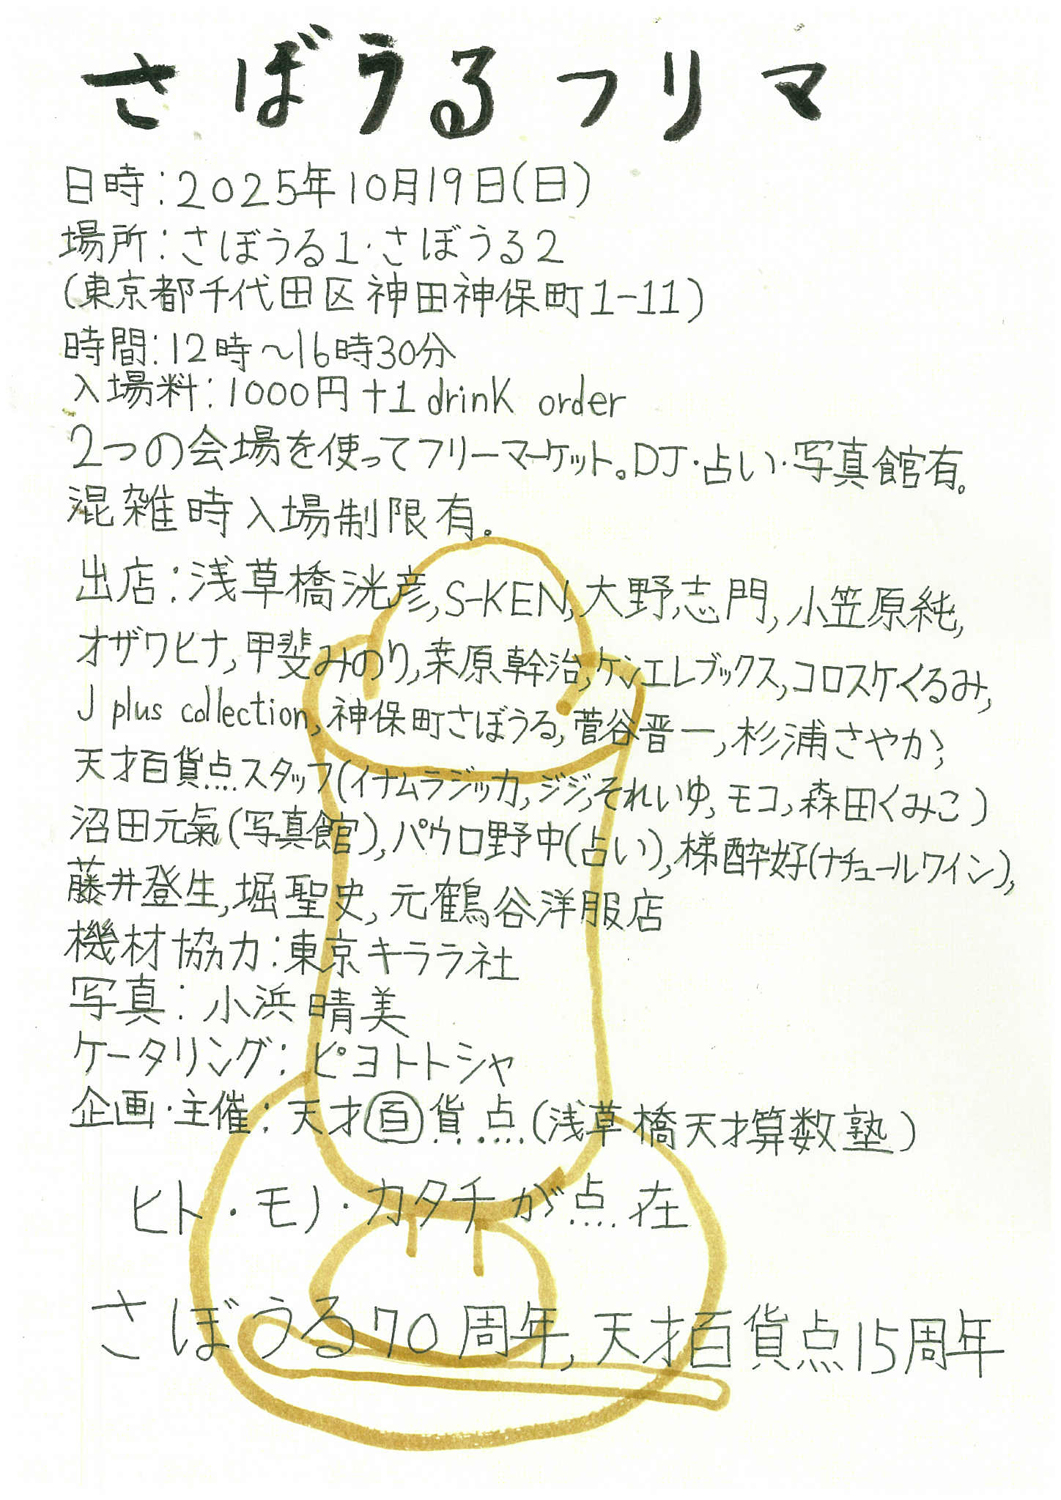 さぼうるフリマ
日時:2025年10月19日(日)
場所:さぼうる1・さぼうる2
(東京都千代田区神田神保町1-11)
時間:12時〜16時30分
入場料:1000円+1 drinK order
2つの会場を使ってフリーマーケット。DJ・占い・写真館有。
混雑時入場制限有。
出店:浅草橋洸彦,S-KEN,大野志門,小笠原純,
オザワヒナ,甲斐みのり,桒原幹治,ケンエレブックス,コロスケくるみ,
J plus collection,神保町さぼうる,菅谷晋一,杉浦さやか,
天才百貨点スタッフ(イナムラジッカ,ジジ,それいゆ,モコ,森田くみこ)
沼田元氣(写真館),パウロ野中(占い),梯酔好(ナチュールワイン),
藤井登生,堀聖史,元鶴谷洋服店
機材協力:東京キララ社
写真:小浜晴美
ケータリング:ピヨトトシャ
企画・主催:天才百貨点(浅草橋天才算数塾)
ヒト・モノ・カタチが点在
さぼうる70周年,天才百貨点15周年